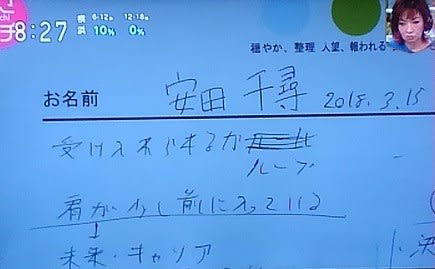 8:27
横浜 6-12時 10% 12-18時 0%
穏やか、整理 人望、報われる
お名前 安田 千尋 2018.3.15
ループ
肩が少し前に入っている
未来・キャリア